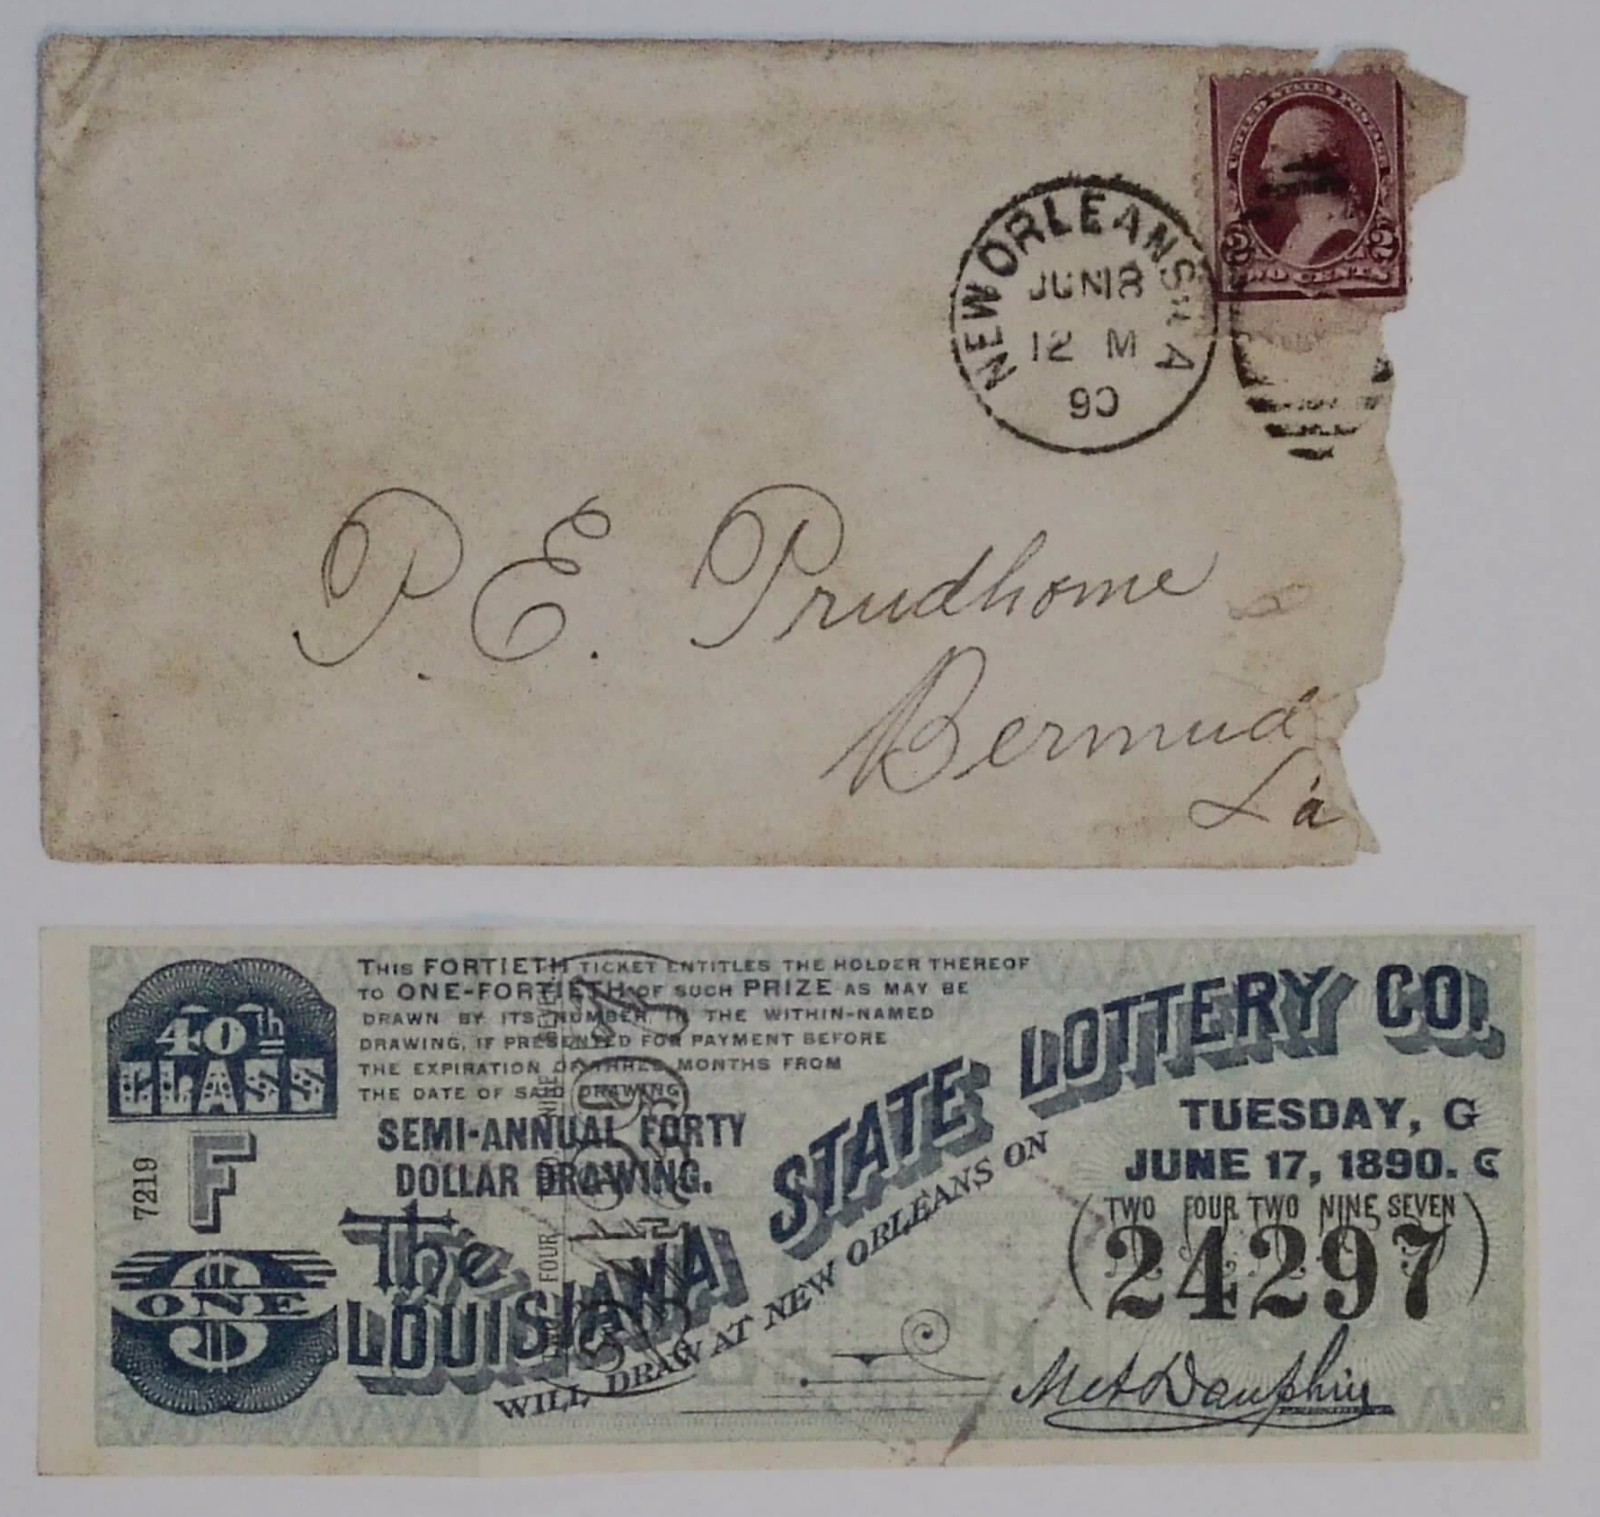 UNITED STATES POSTAGE
2 2
TWO CENTS
NEW ORLEANS
JUN 18
12 M
90
P. E. Prudhome
Bermud
La
40th
CLASS
F
7219
ONE
THIS FORTIETH TICKET ENTITLES THE HOLDER THEREOF
TO ONE-FORTIETH OF SUCH PRIZE AS MAY BE
DRAWN BY ITS NUMBER IN THE WITHIN-NAMED
DRAWING, IF PRESENTED FOR PAYMENT BEFORE
THE EXPIRATION OF THREE MONTHS FROM
THE DATE OF SAID DRAWING.
SEMI-ANNUAL FORTY
DOLLAR DRAWING.
The
LOUISIANA STATE LOTTERY CO.
WILL DRAW AT NEW ORLEANS ON
TUESDAY, G
JUNE 17, 1890. G
(TWO FOUR TWO NINE SEVEN)
24297
M. A. Dauphin